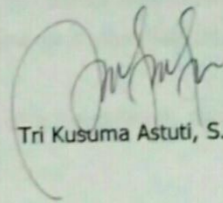 Tri Kusuma Astuti, S.